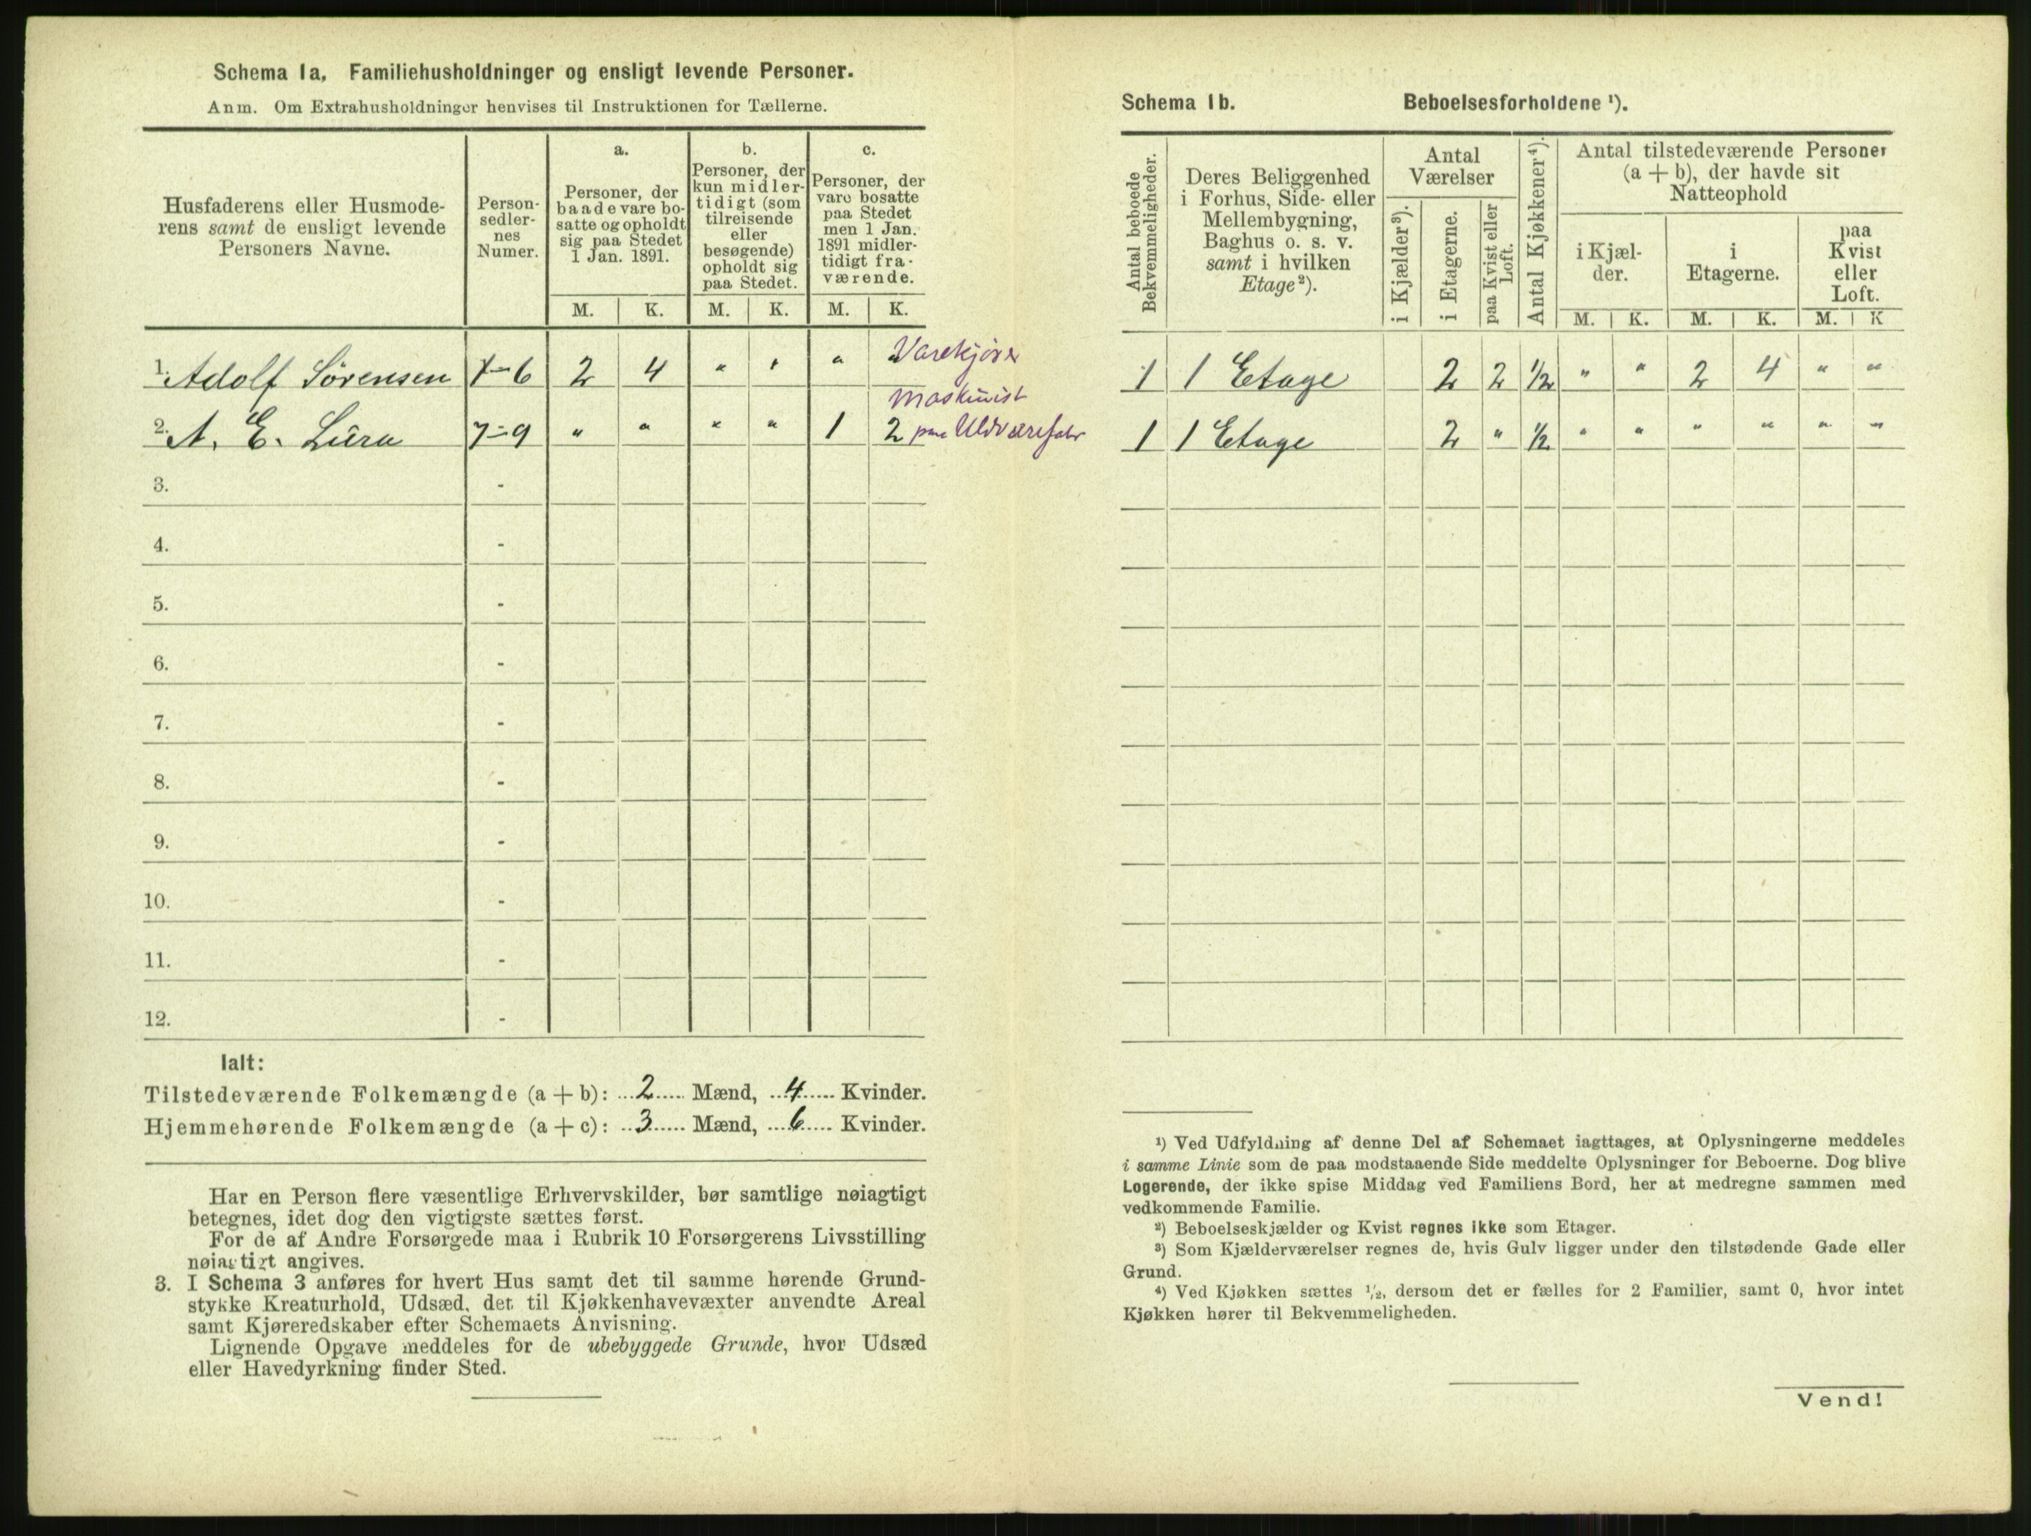 Schema 1a. Familiehusholdninger og ensligt levende Personer.
Anm. Om Extrahusholdninger henvises til Instruktionen for Tællerne.
Husfaderens eller Husmode-
rens samt de ensligt levende
Personers Navne.
Person-
sedler-
nes
Numer.
a.
Personer, der
baade vare bo-
satte og opholdt
sig paa Stedet
1 Jan. 1891.
b.
Personer, der
kun midler-
tidigt (som
tilreisende
eller
besøgende)
opholdt sig
paa Stedet.
c.
Personer, der
vare bosatte
paa Stedet
men 1 Jan.
1891 midler-
tidigt fra-
værende.
M. K. M. K. M. K.
1. Adolf Sörensen 1-6 2 4 " " " " Varekjører
2. A. E. Lura 7-9 " " " " 1 2 Maskinist paa Uldvarefabr
3. -
4. -
5. -
6. -
7. -
8. -
9. -
10. -
11. -
12. -
Ialt:
Tilstedeværende Folkemængde (a + b): 2 Mænd, 4 Kvinder.
Hjemmehørende Folkemængde (a + c): 3 Mænd, 6 Kvinder.
Har en Person flere væsentlige Erhvervskilder, bør samtlige nøiagtigt
betegnes, idet dog den vigtigste sættes først.
For de af Andre Forsørgede maa i Rubrik 10 Forsørgerens Livsstilling
nøiagtigt angives.
3. I Schema 3 anføres for hvert Hus samt det til samme hørende Grund-
stykke Kreaturhold, Udsæd, det til Kjøkkenhavevæxter anvendte Areal
samt Kjøreredskaber efter Schemaets Anvisning.
Lignende Opgave meddeles for de ubebyggede Grunde, hvor Udsæd
eller Havedyrkning finder Sted.
Schema 1b. Beboelsesforholdene ¹).
Antal beboede
Bekvemmeligheder.
Deres Beliggenhed
i Forhus, Side- eller
Mellembygning,
Baghus o. s. v.
samt i hvilken
Etage²).
Antal
Værelser
i Kjælder³).
i Etagerne.
paa Kvist eller
Loft.
Antal Kjøkkener⁴).
Antal tilstedeværende Personer
(a + b), der havde sit
Natteophold
i Kjæl-
der.
i
Etagerne.
paa
Kvist
eller
Loft.
M. K. M. K. M. K
1 1 Etage 2 2 ½ " " 2 4 " "
1 1 Etage 2 " ½ " " " " " "
¹) Ved Udfyldning af denne Del af Schemaet iagttages, at Oplysningerne meddeles
i samme Linie som de paa modstaaende Side meddelte Oplysninger for Beboerne. Dog blive
Logerende, der ikke spise Middag ved Familiens Bord, her at medregne sammen med
vedkommende Familie.
²) Beboelseskjælder og Kvist regnes ikke som Etager.
³) Som Kjælderværelser regnes de, hvis Gulv ligger under den tilstødende Gade eller
Grund.
⁴) Ved Kjøkken sættes ½, dersom det er fælles for 2 Familier, samt 0, hvor intet
Kjøkken hører til Bekvemmeligheden.
Vend!